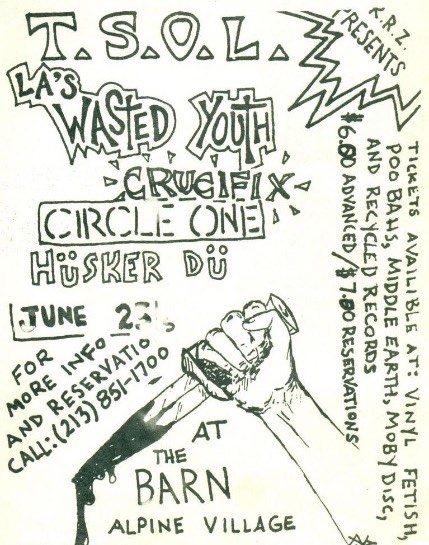 K.R.Z.
PRESENTS
T.S.O.L.
LA'S
WASTED YOUTH
CRUCIFIX
CIRCLE ONE
HÜSKER DÜ
JUNE 23
FOR
MORE INFO
AND RESERVATIO
CALL:(213) 851-1700
AT
THE
BARN
ALPINE VILLAGE
TICKETS AVAILIBLE AT: VINYL FETISH,
POO BAHS, MIDDLE EARTH, MOBY DISC,
AND RECYCLED RECORDS
$6.00 ADVANCED/$7.00 RESERVATIONS